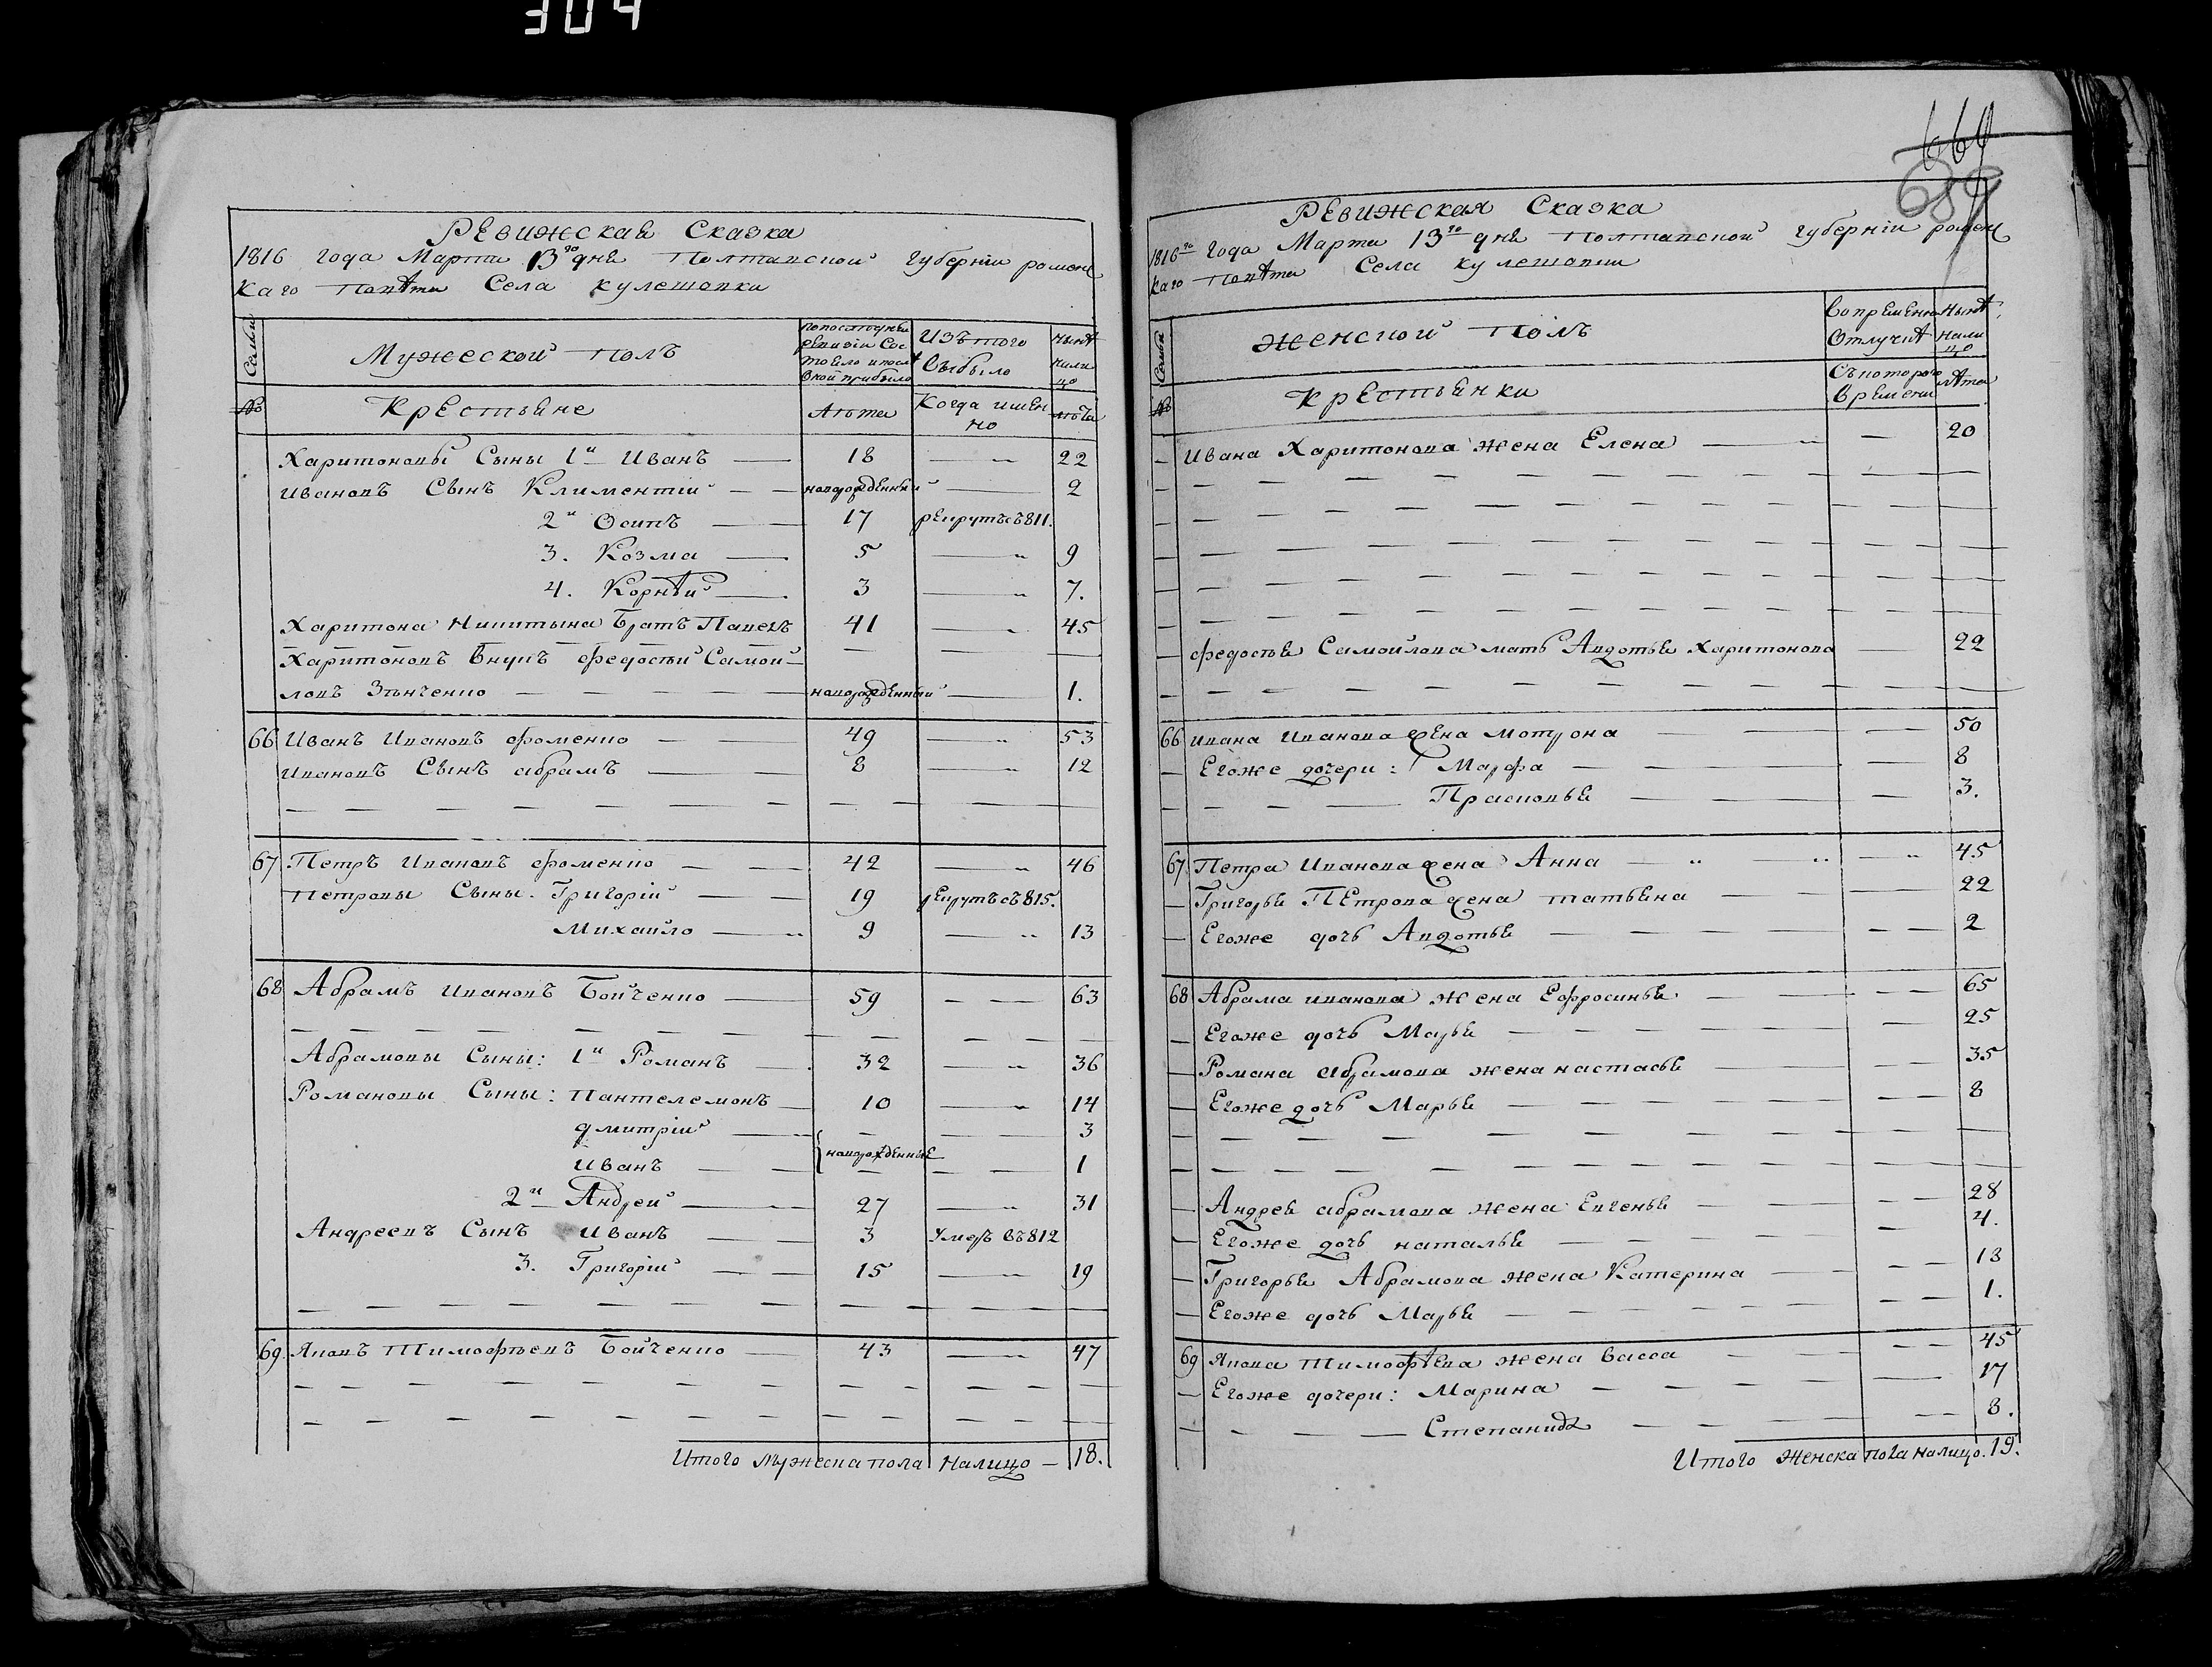 304
Ревижская Сказка
1816 года Марта 13го дня Полтавской губернии ромен
каго Повѣта Села кулешовки
Семьи
Мужеской полъ
попоследней
ревизіи Сос
тояло ипосл
Оной прибыло
Изъ того
Выбыло
Нынѣ
нали
цо
№
Крестьяне
Лѣта
Когда имен
но
лѣта
Харитоновы Сыны 1й Иванъ — 18 — 22
Ивановъ Сынъ Климентій — новорожденный — 2
2й Осипъ — 17 рекрутъ въ 811.
3. Козма — 5 — 9
4. Корнѣй — 3 — 7.
Харитона Никитына Братъ Павелъ 41 — 45
Харитоновъ Внукъ федосѣй Самой
ловъ Зѣнченко — новорожденный — 1.
66 Иванъ Ивановъ фоменко — 49 — 53
Ивановъ Сынъ абрамъ — 8 — 12
67 Петръ Ивановъ фоменко — 42 — 46
Петровы Сыны. Григорій — 19 рекрутъ въ 815.
Михайло — 9 — 13
68 Абрамъ Ивановъ Бойченко — 59 — 63
Абрамовы Сыны: 1й Романъ — 32 — 36
Романовы Сыны: Пантелемонъ — 10 — 14
дмитрій — 3
новорожденные
Иванъ — 1
2й Андрей — 27 — 31
Андреевъ Сынъ Иванъ — 3 Умеръ въ 812
3. Григорій — 15 — 19
69. Яковъ Тимофѣевъ Бойченко — 43 — 47
Итого мужеска пола Налицо — 18.
660
689
Ревижская Сказка
1816го года Марта 13го дня Полтавской губерніи ромен
каго Повѣта Села кулешовки
Семьи
Женской полъ
Вовременной
Отлучкѣ
Нынѣ
нали
цо
№
Крестьянки
Съкоторого
Времени
лѣта
Ивана Харитонова жена Елена — 20
федосѣя Самойлова мать Авдотья Харитонова — 22
66 Ивана Иванова жена мотрона — 50
Егоже дочери: Марфа — 8
Прасковья — 3.
67 Петра Иванова жена Анна — 45
Григорья Петрова жена татьяна — 22
Егоже дочь Авдотья — 2
68 Абрама иванова жена Ефросинья — 65
Егоже дочь Марья — 25
Романа абрамова жена настасья — 35
Егоже дочь Марья — 8
Андрея абрамова жена Евгенья — 28
Егоже дочь наталья — 4.
Григорья Абрамова жена Катерина — 18
Егоже дочь Марья — 1.
69 Якова Тимофѣева жена Васса — 45
Егоже дочери: Марина — 17
Степанида — 8.
Итого Женска пола налицо. 19.